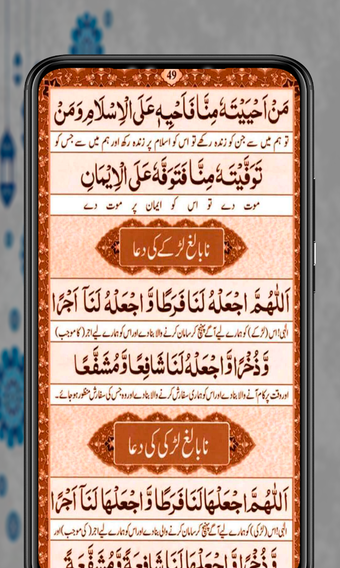 49
مَنْ اَحْيَيْتَهٗ مِنَّا فَاَحْيِهٖ عَلَى الْاِسْلَامِ وَمَنْ
تو ہم میں سے جن کو زندہ رکھے تو اس کو اسلام پر زندہ رکھ اور ہم میں سے جس کو
تَوَفَّيْتَهٗ مِنَّا فَتَوَفَّهٗ عَلَى الْاِيْمَانِ
موت دے تو اس کو ایمان پر موت دے
نابالغ لڑکے کی دعا
اَللّٰهُمَّ اجْعَلْهُ لَنَا فَرَطًا وَّاجْعَلْهُ لَنَآ اَجْرًا
الٰہی! اس (لڑکے) کو ہمارے لیے آگے پہنچ کر سامان کرنے والا بنا دے اور اس کو ہمارے لیے اجر (کا موجب)
وَّذُخْرًا وَّاجْعَلْهُ لَنَا شَافِعًا وَّمُشَفَّعًا
اور وقت پر کام آنے والا بنا دے اور اس کو ہماری سفارش کرنے والا بنا دے اور وہ جس کی سفارش منظور ہو جائے۔
نابالغ لڑکی کی دعا
اَللّٰهُمَّ اجْعَلْهَا لَنَا فَرَطًا وَّاجْعَلْهَا لَنَآ اَجْرًا
الٰہی! اس (لڑکی) کو ہمارے لیے آگے پہنچ کر سامان کرنے والی بنا دے اور اس کو ہمارے لیے اجر (کی موجب) اور
وَّذُخْرًا وَّاجْعَلْهَا لَنَا شَافِعَةً وَّمُشَفَّعَةً